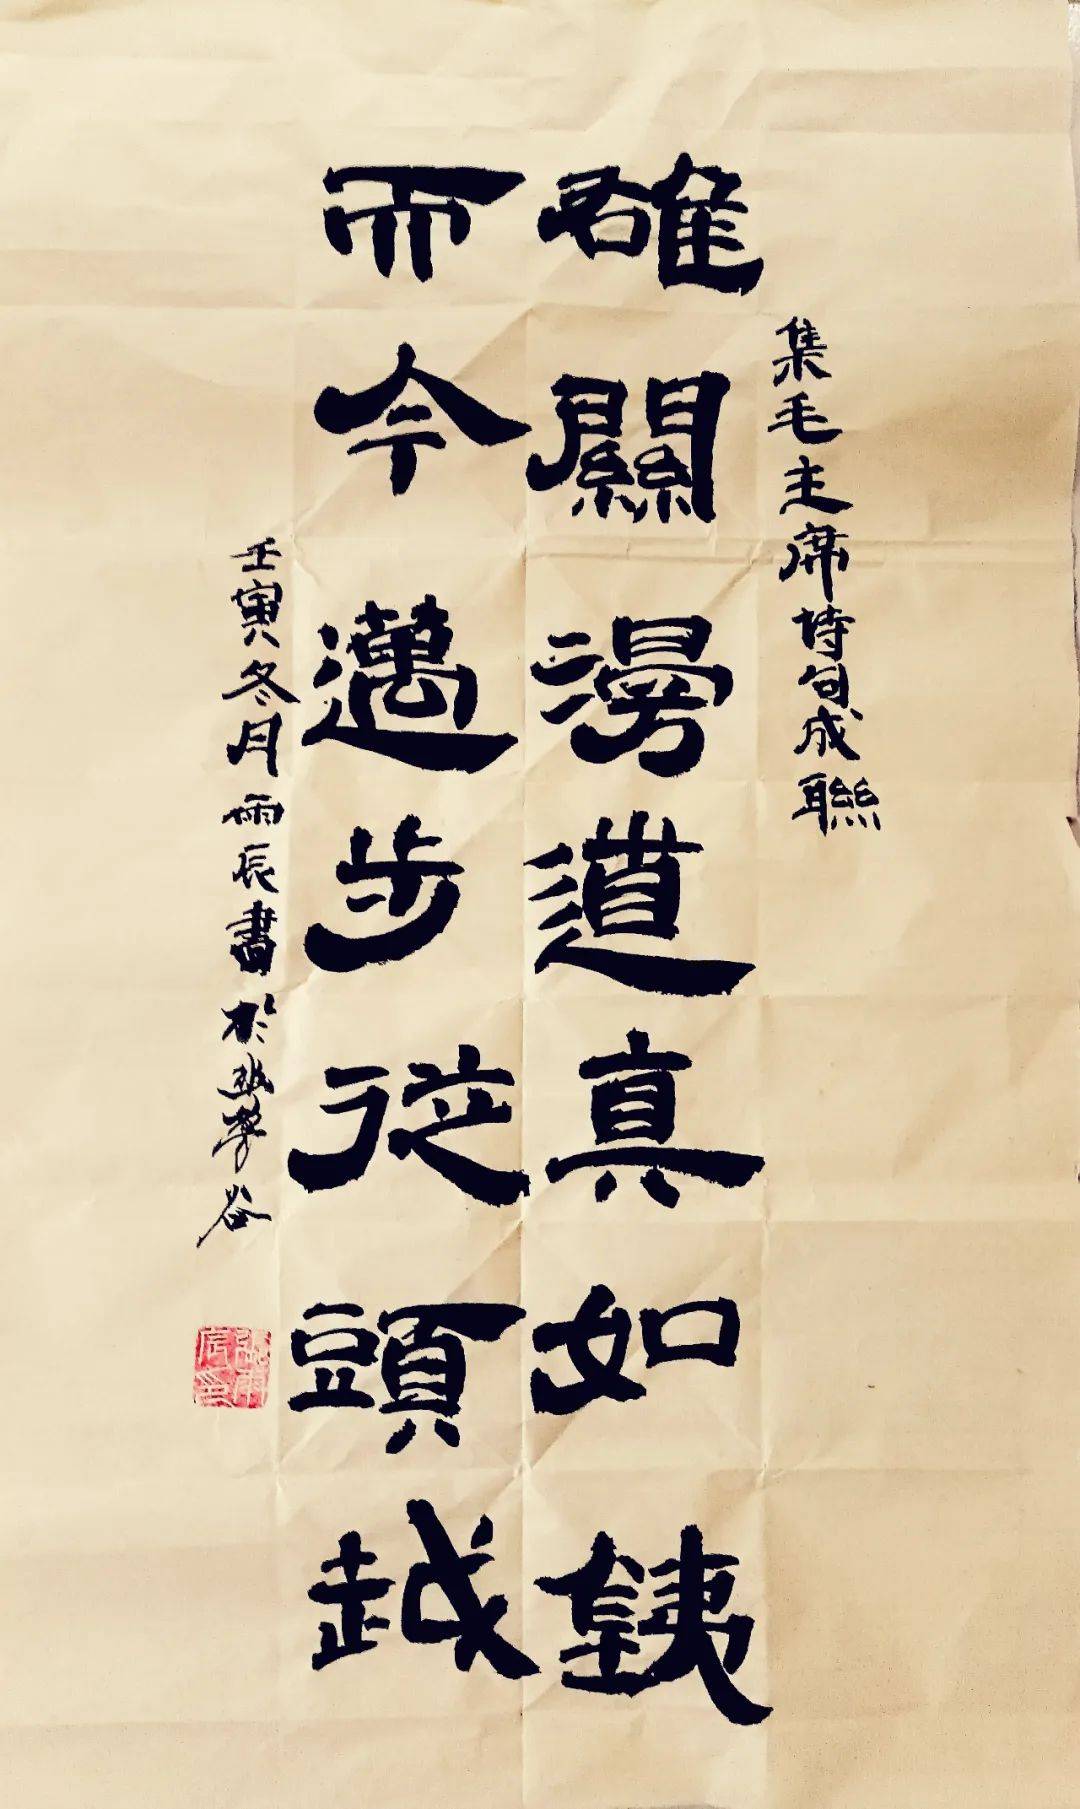 集毛主席詩句成聯
雄關漫道真如銕
而今邁步從頭越
壬寅冬月雨辰書於谷
張雨辰印